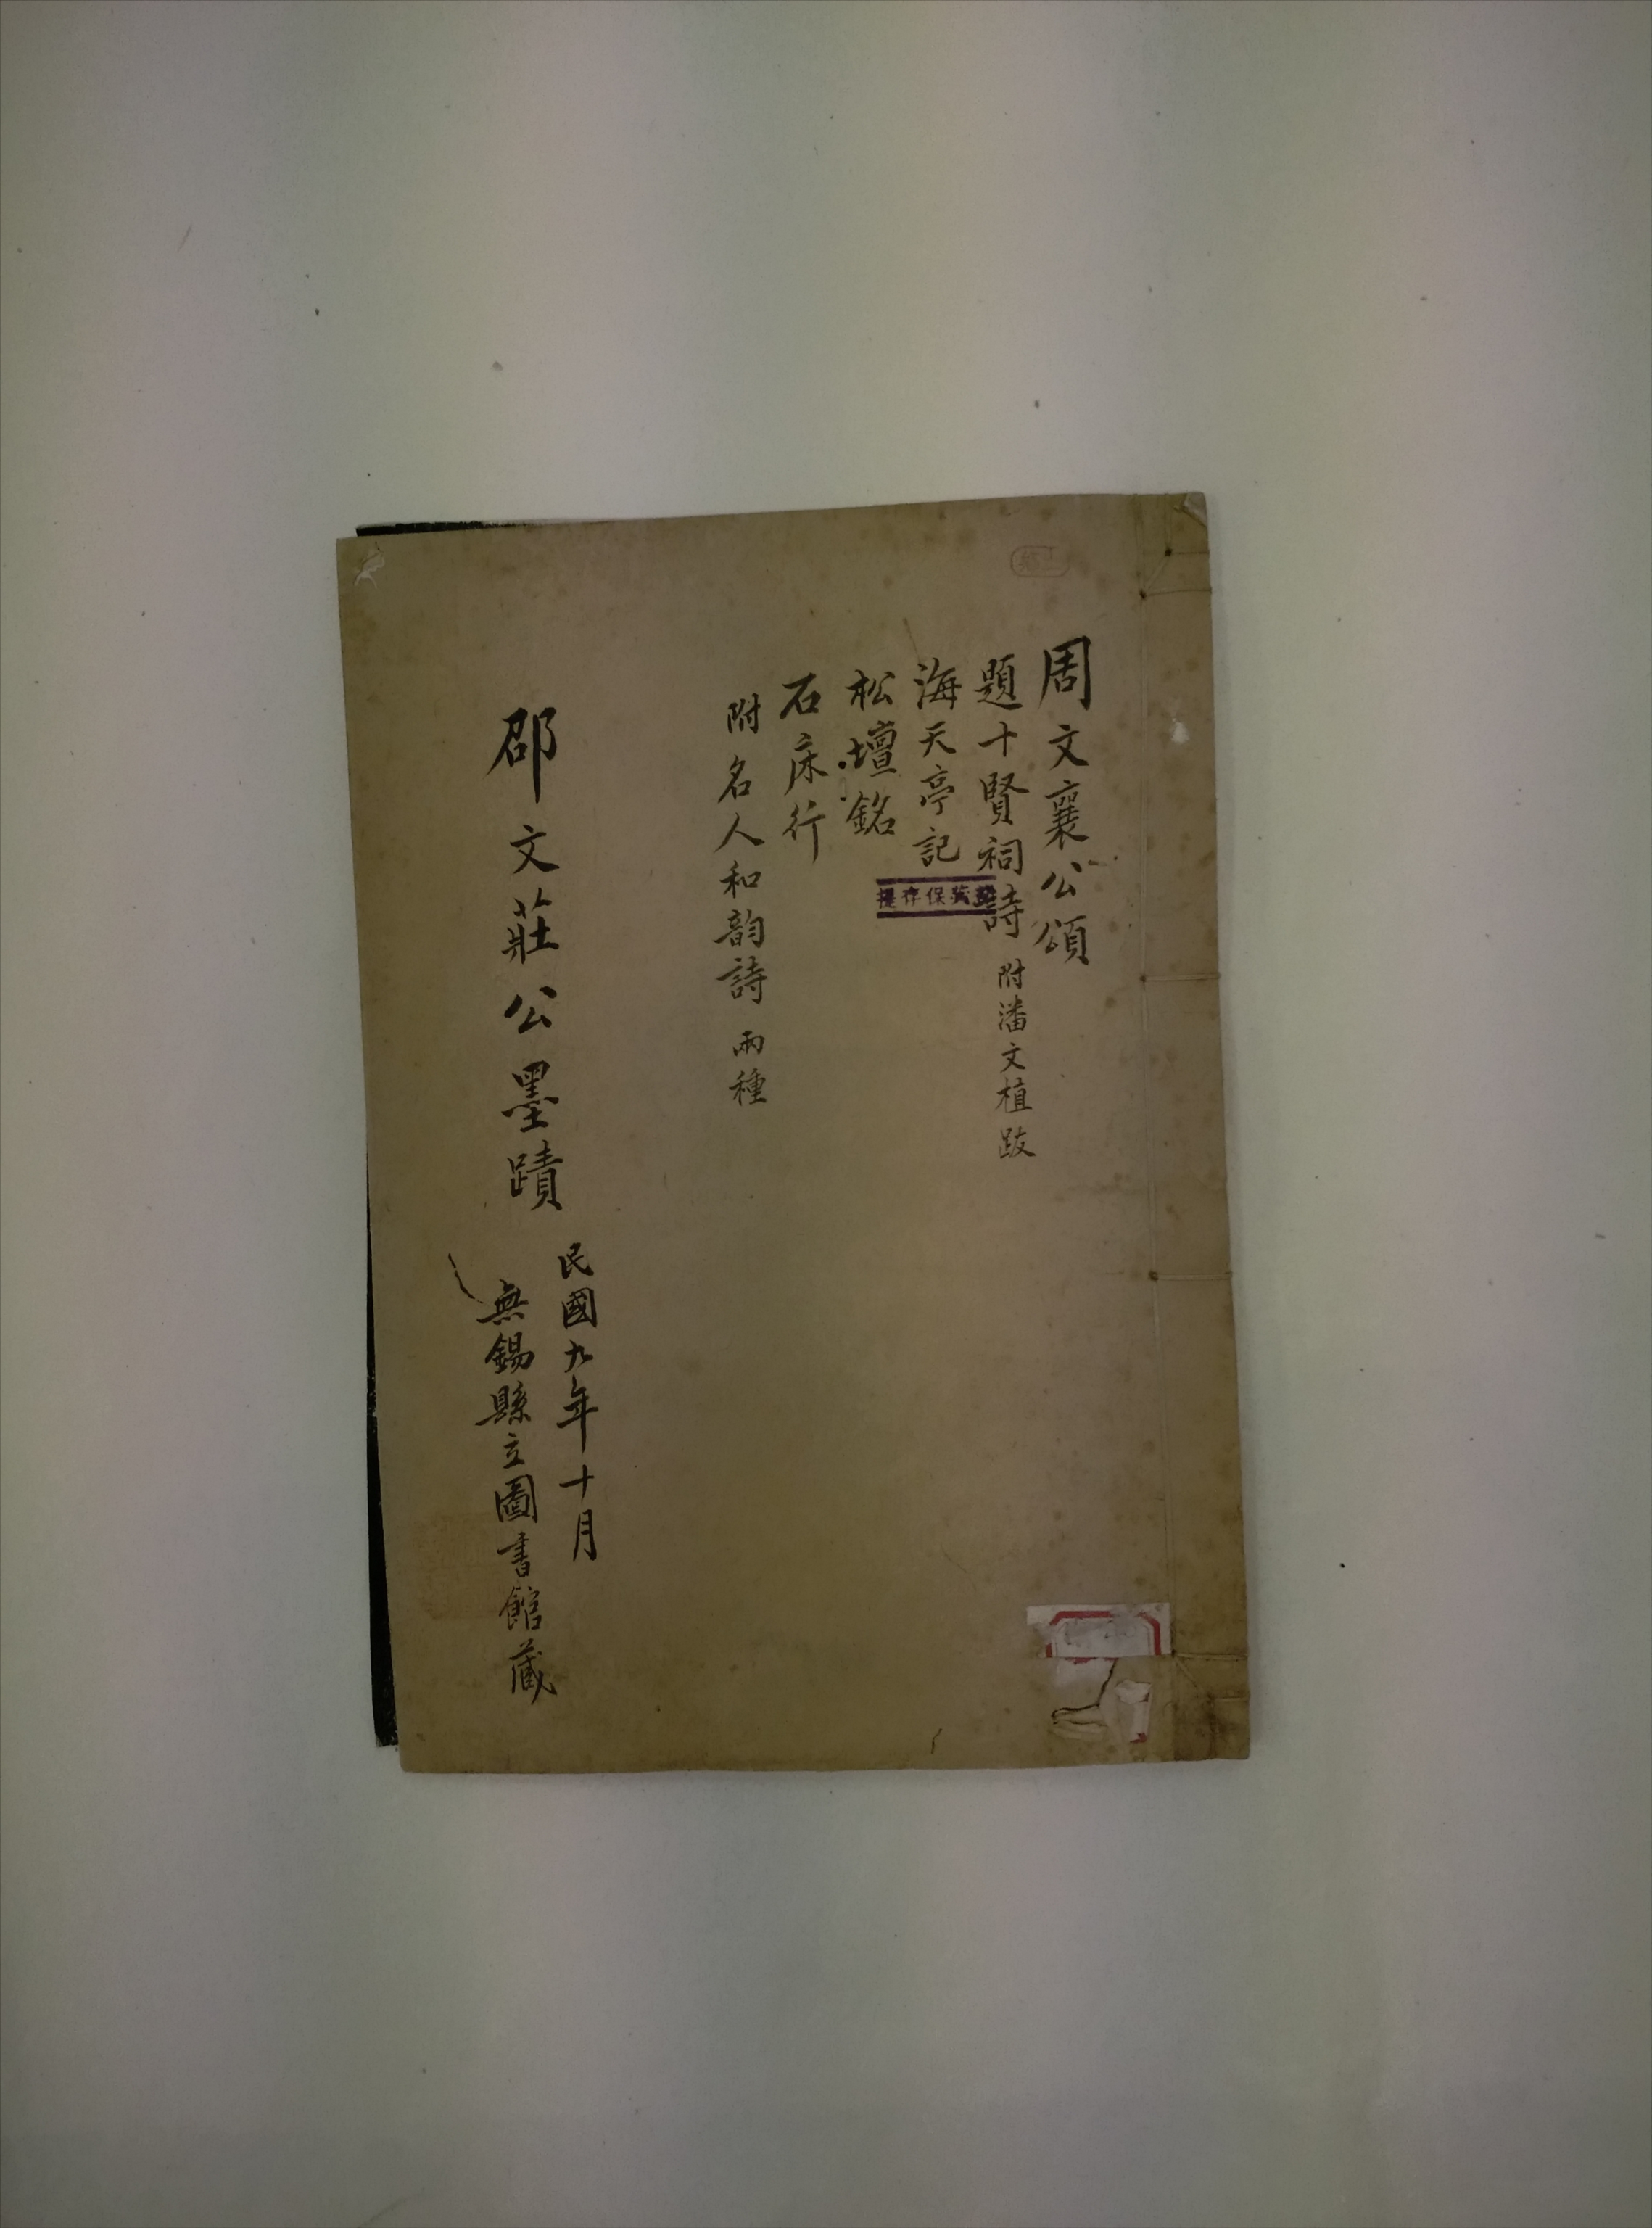 周文襄公頌
題十賢祠詩 附潘文植跋
海天亭記
松壇銘
石床行
附名人和韵詩 兩種
民國九年十月
邵文莊公墨蹟
無錫縣立圖書館藏
提存保